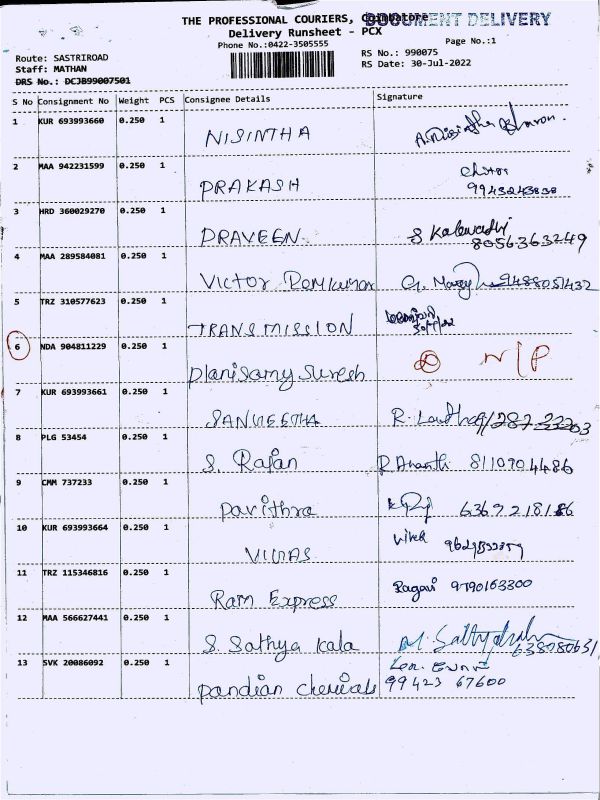 THE PROFESSIONAL COURIERS, Coimbatore
DOCUMENT DELIVERY
Delivery Runsheet - PCX
Phone No.:0422-3505555
Page No.:1
Route: SASTRIROAD
RS No.: 990075
Staff: MATHAN
RS Date: 30-Jul-2022
DRS No.: DCJB99007501
S No Consignment No Weight PCS Consignee Details Signature
1 KUR 693993660 0.250 1 NISINTHA
2 MAA 942231599 0.250 1 PRAKASH
3 HRD 360029270 0.250 1 PRAVEEN 8056363249
4 MAA 289584081 0.250 1 Victor 9488051432
5 TRZ 310577623 0.250 1 TRANSMISSION
6 NDA 904811229 0.250 1 Planisamy Suresh N/P
7 KUR 693993661 0.250 1 SANGEETHA R.
8 PLG 53454 0.250 1 S. Rajan R Ananth 8110704486
9 CMM 737233 0.250 1 Pavithra 6369218186
10 KUR 693993664 0.250 1 Vivek
11 TRZ 115346816 0.250 1 Ram Express Ragavi 9790163300
12 MAA 566627441 0.250 1 S. Sathya kala M.
13 SVK 20086092 0.250 1 Pandian chemicals 99423 67600